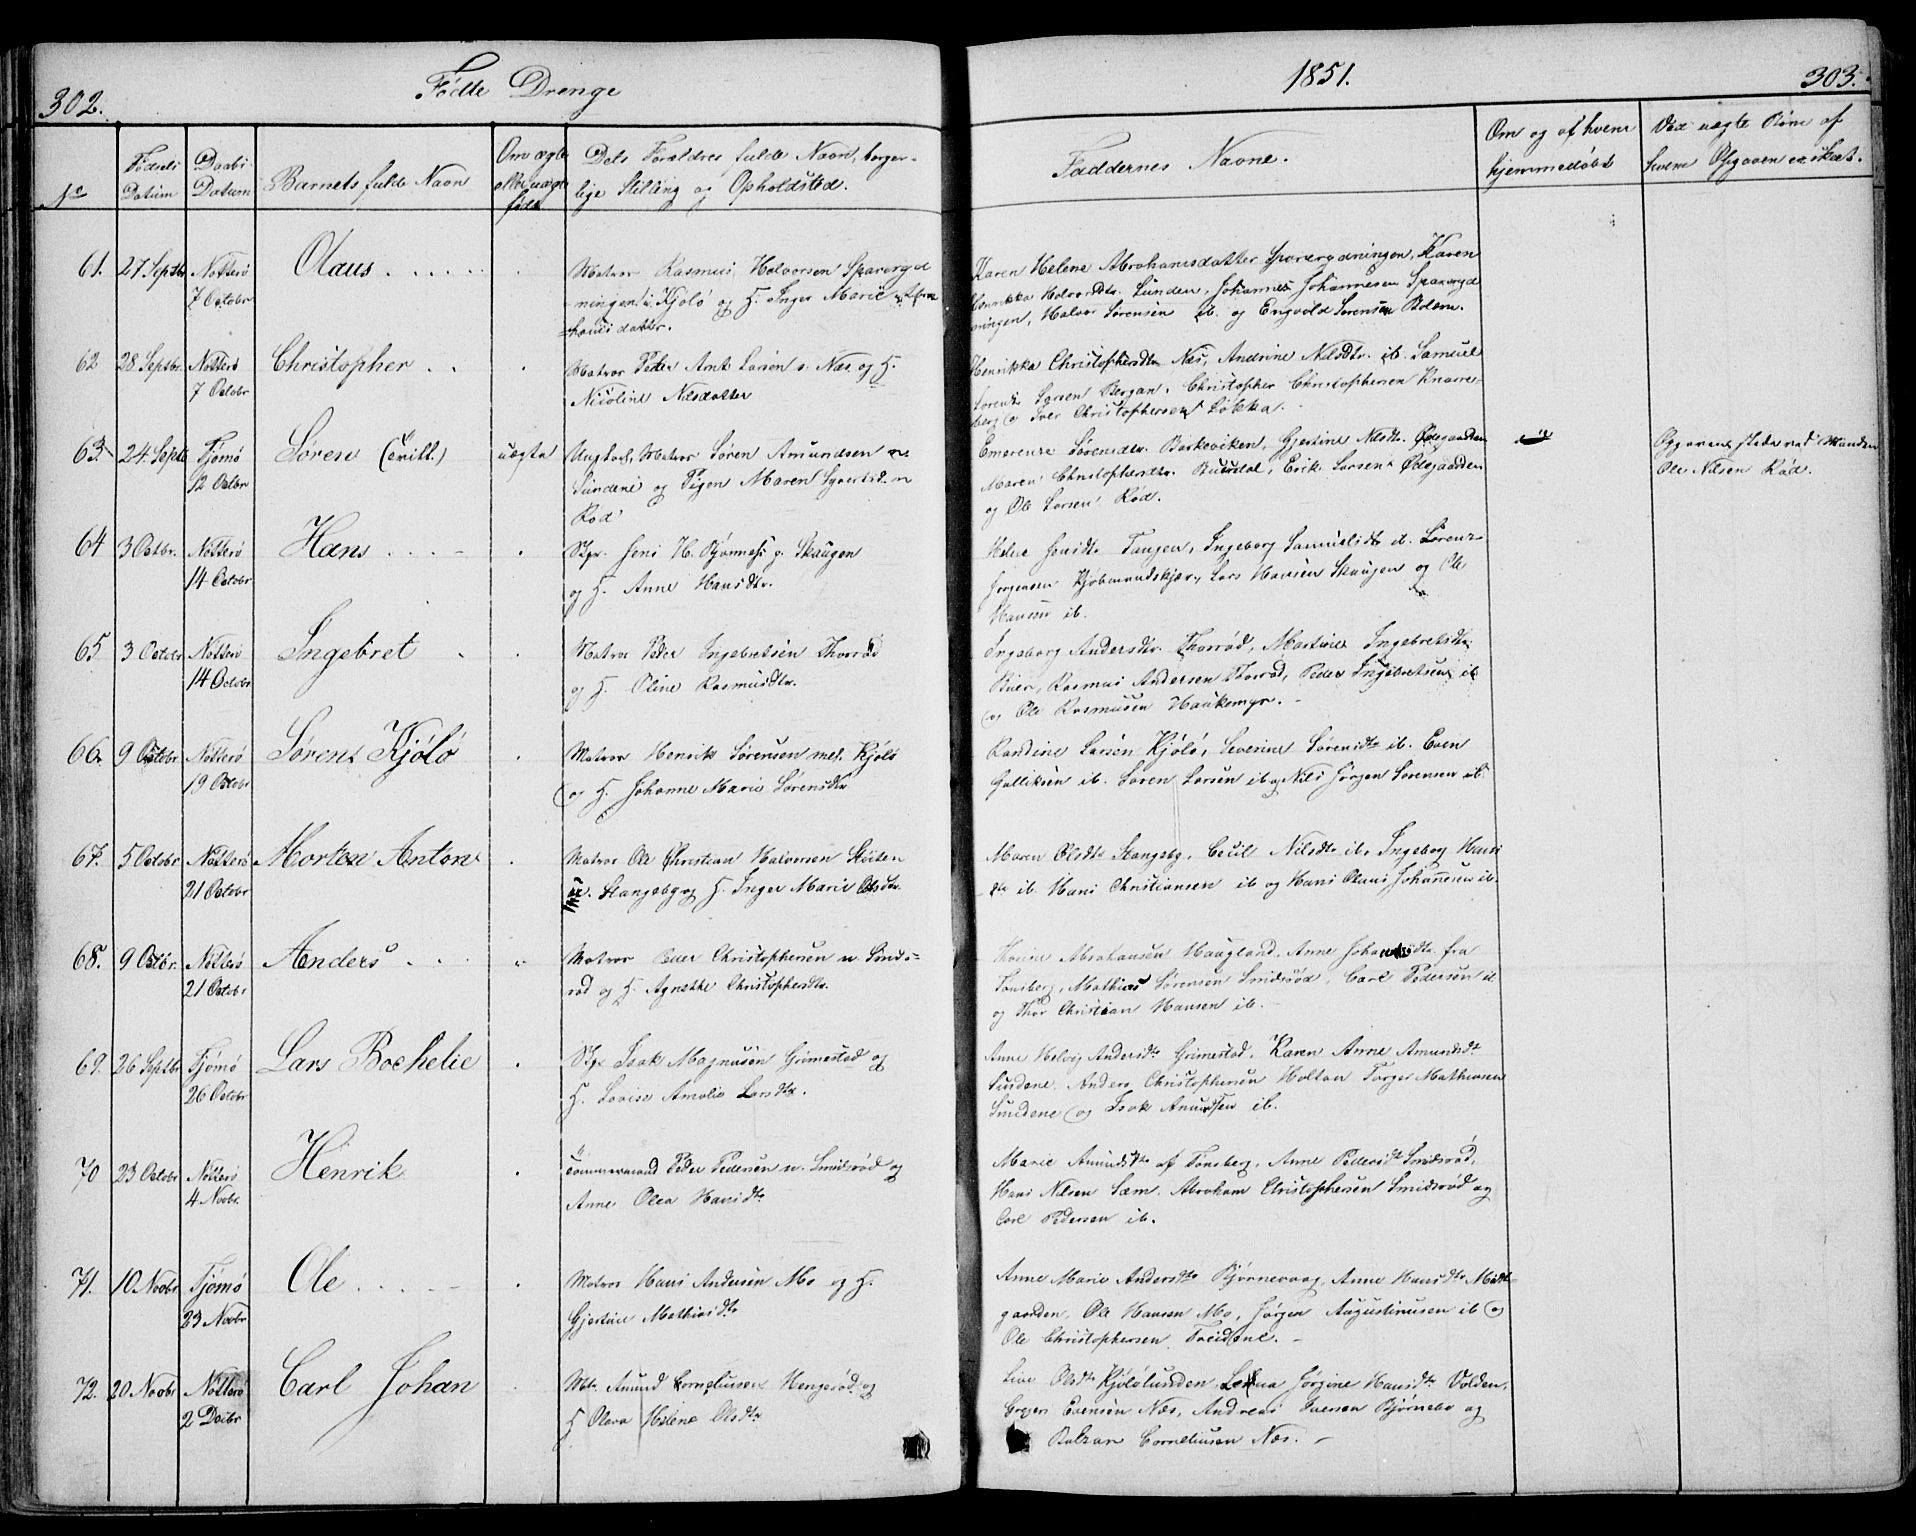 302.
Fødte Drenge
1851.
303.
No
Fødsels Datum
Daabs Datum
Barnets fulde Navn
Om ægte eller uægte født
Dets Forældres fulde Navn, borgerlige Stilling og Opholdsted.
Faddernes Navne.
Om og af hvem hjemmedøbt
Ved uægte Børn af hvem Opgaven er skeet.
61. 27 Septbr Nøtterø 7 Octobr Olaus
Matros Rasmus Halvorsen Spareryd
ningen i Kjølø og H. Inger Marie Abra
hamsdatter.
Karen Helene Abrahamsdatter Sparerydningen, Karen
Henrikka Halvorsdtr. Sunden, Johannes Johannesen Spareryd
ningen, Halvor Sørensen ib. og Engvold Sørensen Bolærn.
62 28 Septbr. Nøtterø 7 Octobr Christopher
Matros Peder Arnt Larsen v. Næs og H.
Nicoline Nilsdatter
Henrikka Christophersdtr Næs, Andrine Nilsdtr. ib. Samuel
Larsen Bergan, Christopher Christophersen Knarre-
berg og Iver Christophersen Løkka.
63 24 Septb Tjømø 12 Octbr Søren (enill.) uægte
Ungkarl, Matros Søren Amundsen
Sundene og Pigen Maren Syvertsd.
Rød
Emerense Sørensdtr. Barkeviken, Gjertine Nilsdtr. Ødegaarden
Maren Christophersdtr. Buerstal, Erik Larsen Ødegaarden
og Ole Larsen Rød.
Opgavens skede ved Manden
Ole Nilsen Rød.
64 3 Octbr. Nøtterø 14 Octobr Hans
Jens H. Bjønnes g. Skaugen
og H. Anne Hansdtr.
Helene Jensdtr Tangen, Ingeborg Samuelsdtr ib. Lorenz
Jørgensen Kjøbmandskjær, Lars Hansen Skaugen og Ole
Hansen ib.
65 3 Octobr Nøtterø 14 Octobr Ingebret
Matros Peder Ingebretsen Thorrød
og H. Oline Rasmusdtr.
Ingeborg Andersdtr. Thorrød, Martine Ingebretsdtr
Buer, Rasmus Andersen Thorrød, Peder Ingebretsen ib
og Ole Rasmussen Haukemyr.
66. 9 Octobr Nøtterø 19 Octobr Sørens Kjølø
Matros Henrik Sørensen Kjølø
og H. Johanne Marie Sørensdtr
Randine Larsen Kjølø, Severine Sørensdtr ib. Even
Gulliksen ib. Søren Larsen ib og Nils Jørgen Sørensen ib.
67. 5 Octobr Nøtterø 21 Octobr Morten Anton
Matros Ole Christian Halvorsen
Stangeby og H. Inger Marie Olsdtr.
Maren Olsdtr Stangeby, Cecil Nilsdtr ib, Ingeborg Hans
dtr ib. Hans Christiansen ib og Hans Olaus Johannesen ib.
68. 9 Octbr. Nøtterø 21 Octobr Anders
Matros Peder Christophersen
rød og H. Agnethe Christophersdtr.
Abrahamsen Haugland, Anne fra
Tønsberg, Mathias Sørensen Smidsrød, Carl Pedersen ib
og Thor Christian Hansen ib.
69. 26 Septbr Tjømø 26 Octobr Lars Bochelie
Isak Magnusen Grimestad og
H. Lovise Amalie Larsdtr.
Anne Helvig Andersdtr Grimestad, Karen Anne Amundsdtr
Sundene, Anders Christophersen Holtan Torger Mathiasen
Sundene og Isak Amundsen ib.
70 23 Octobr Nøtterø 4 Novbr. Henrik
Tømmermand Peder Pedersen v. Smidsrød og
Anne Olea Hansdtr
Marie Amundsdtr af Tønsberg, Anne Pedersdtr Smidsrød,
Hans Nilsen Sæm, Abraham Christophersen Smidsrød og
Carl Pedersen ib.
71. 10 Novbr Tjømø 23 Novbr Ole
Matros Hans Andersen Mo og H.
Gjertine Mathiasdtr
Anne Marie Andersdtr Bjørnevaag, Anne Hansdtr Midt-
gaarden, Ole Hansen Mo, Jørgen Augustinusen ib og
Ole Christophersen Treidene.
72. 20 Novbr Nøtterø 2 Decbr Carl Johan
Mtr. Amund Corneliusen Hengsrød og
H Olava Helene Olsdtr
Live Olsdtr Kjølølunden, Jørgine Hansdtr Volden,
Evensen Næs, Andreas Iversen Bjørnebo og
Balzar Corneliusen Næs.